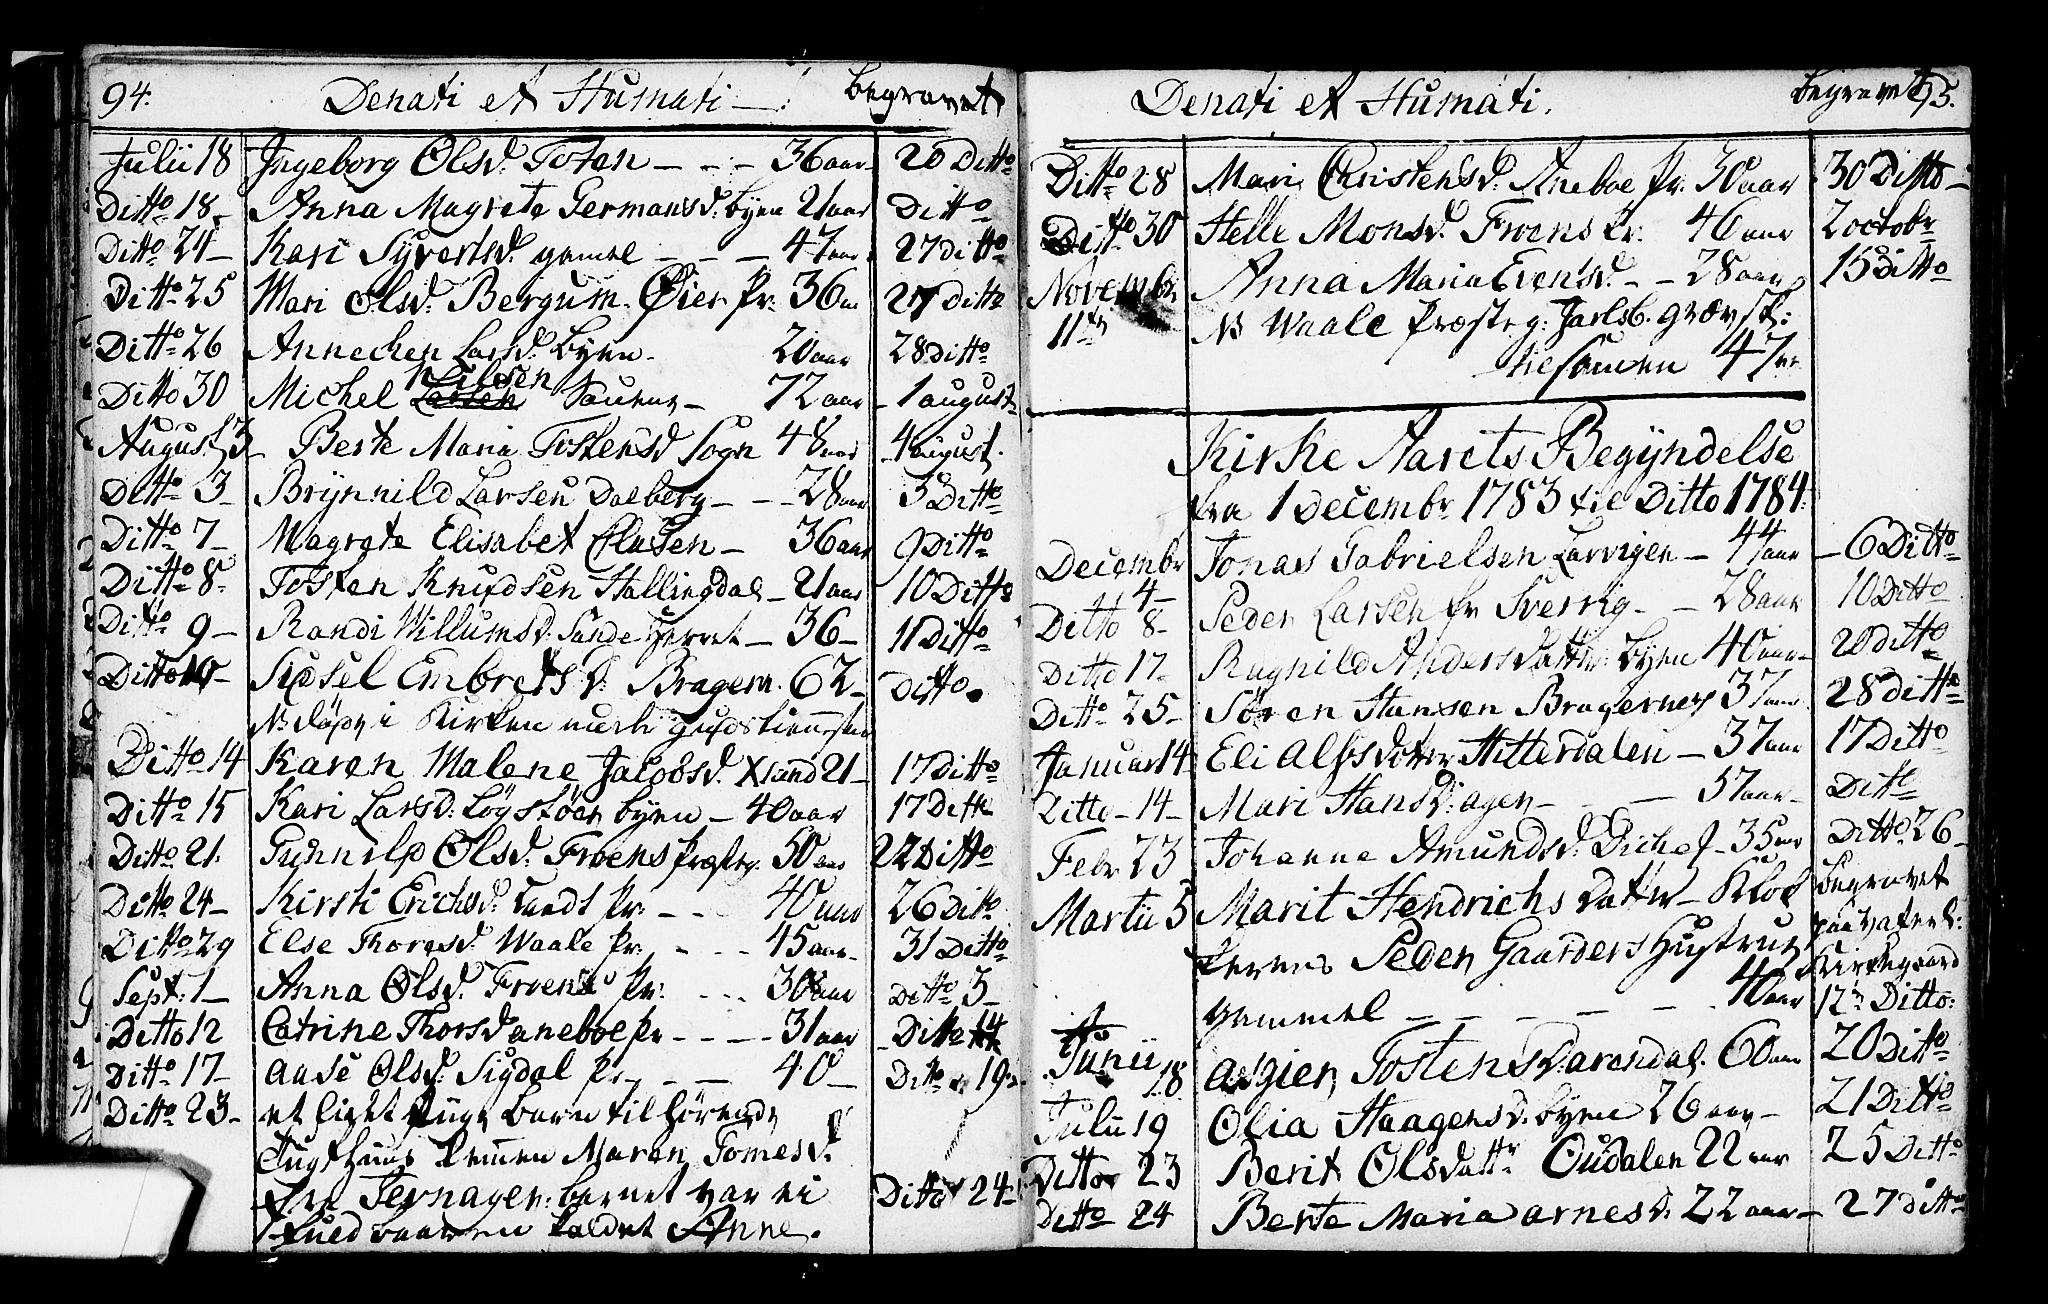 94. Denati et Humati — begravet
Julii 18 Ingeborg Olsd. Toten - - - 36 aar 20 Ditto
Ditto 18 Anna Magrete Germansd. byen 21 aar Ditto
Ditto 24 Kari Syvertsd. gamel - - - 47 aar 27 ditto
Ditto 25 Mari Olsd. Bergum Øier Pr: 36 aar 27 ditto
Ditto 26 Annechen Larsd. byen 20 aar 28 ditto
Nilsen
Ditto 30 Michel Larsen 72 aar 1 august
August 3 Berte Maria Tostensd Sogn 48 aar 4 august
Ditto 3 Brynnild Larsen Dalberg - - 28 aar 5 Ditto
Ditto 7 Magrete Elisabet Clasen - 36 aar 9 Ditto
Ditto 8 Tosten Knudsen Hallingdal - 21 aar 10 Ditto
Ditto 9 Randi Villumsd: Sande 36 - 11 Ditto
Ditto 10 Sidsel Embretsd: Bragern. 62 - Ditto
NB i Kirken
Ditto 14 Karen Malene Jacobsd. Xsand 21 - 17 Ditto
Ditto 15 Kari Larsd: Løgstøer byen - 40 aar 17 Ditto
Ditto 21. Gunnild Olsd. Froens Præsteg. 50 aar 22 Ditto
Ditto 24 Kirsti Erichsd. Lands Pr: - - 40 aar 26 Ditto
Ditto 29 Else Thoresd. Waale Pr: - - - 45 aar 31 Ditto
Sept: 1 Anna Olsd. Froens Pr: - - - 30 aar Ditto 3
Ditto 12 Catrine Thorsd aneboe Pr - - - 31 aar Ditto 14
Ditto 17 Aase Olsd. Sigdal Pr - - - 40 - Ditto 19
Ditto 23 et lidet Pige barn tilhørende
Tugthuus Lemmen Maren Tomesd.
fra Ternagen barnet var ei
daaben kaldet Anne. Ditto 24

Denati et Humati. begravet 95.
Ditto 28 Mari Christensd: Aneboe Pr. 30 aar 30 Ditto
Ditto 30 Helle Monsd. Froens Pr: 46 aar 2 octobr
Novembr Anna Maria Evensd. - - 28 aar 15 ditto
11te NB Waale Præsteg: Jarlsb. grævsk:
tilsamen 47
Kirke Aarets Begyndelse
fra 1 Decembr 1783 til Ditto 1784.
Decembr Jonas Gabrielsen Larvigen - 44 aar - 6 Ditto
4
Ditto 8 Peder Larsen fr Sverrig - - 28 aar 10 Ditto
Ditto 17 Ragnild Andersdatter: byen 40 aar 20 Ditto
Ditto 25 Søren Hansen Bragernes 37 aar 28 ditto
Januar 14 Eli Alfsdotter Hitterdalen - 37 aar 17 Ditto
Ditto - 14 - Mari Hansd: agen - - - 57 aar Ditto
Febr 23 Johanne Amundsd. 35 aar Ditto 26
Martii 5 Marit Hendrichsdatter - Klok begravet
kerens Peder Gaarders Hustrue paa
gammel - - - - - - 40 aar Kirkegaard
12te Ditto:
Junii
18 Asgier Tostensd: arendal. 60 aar 20 Ditto
Julii 19 Olia Haagensd. byen 26 aar 21 Ditto
Ditto 23 Berit Olsdattr Oudalen 22 aar 25 Ditto
Ditto 24 Berte Maria arnesd. 22 aar 27 ditto